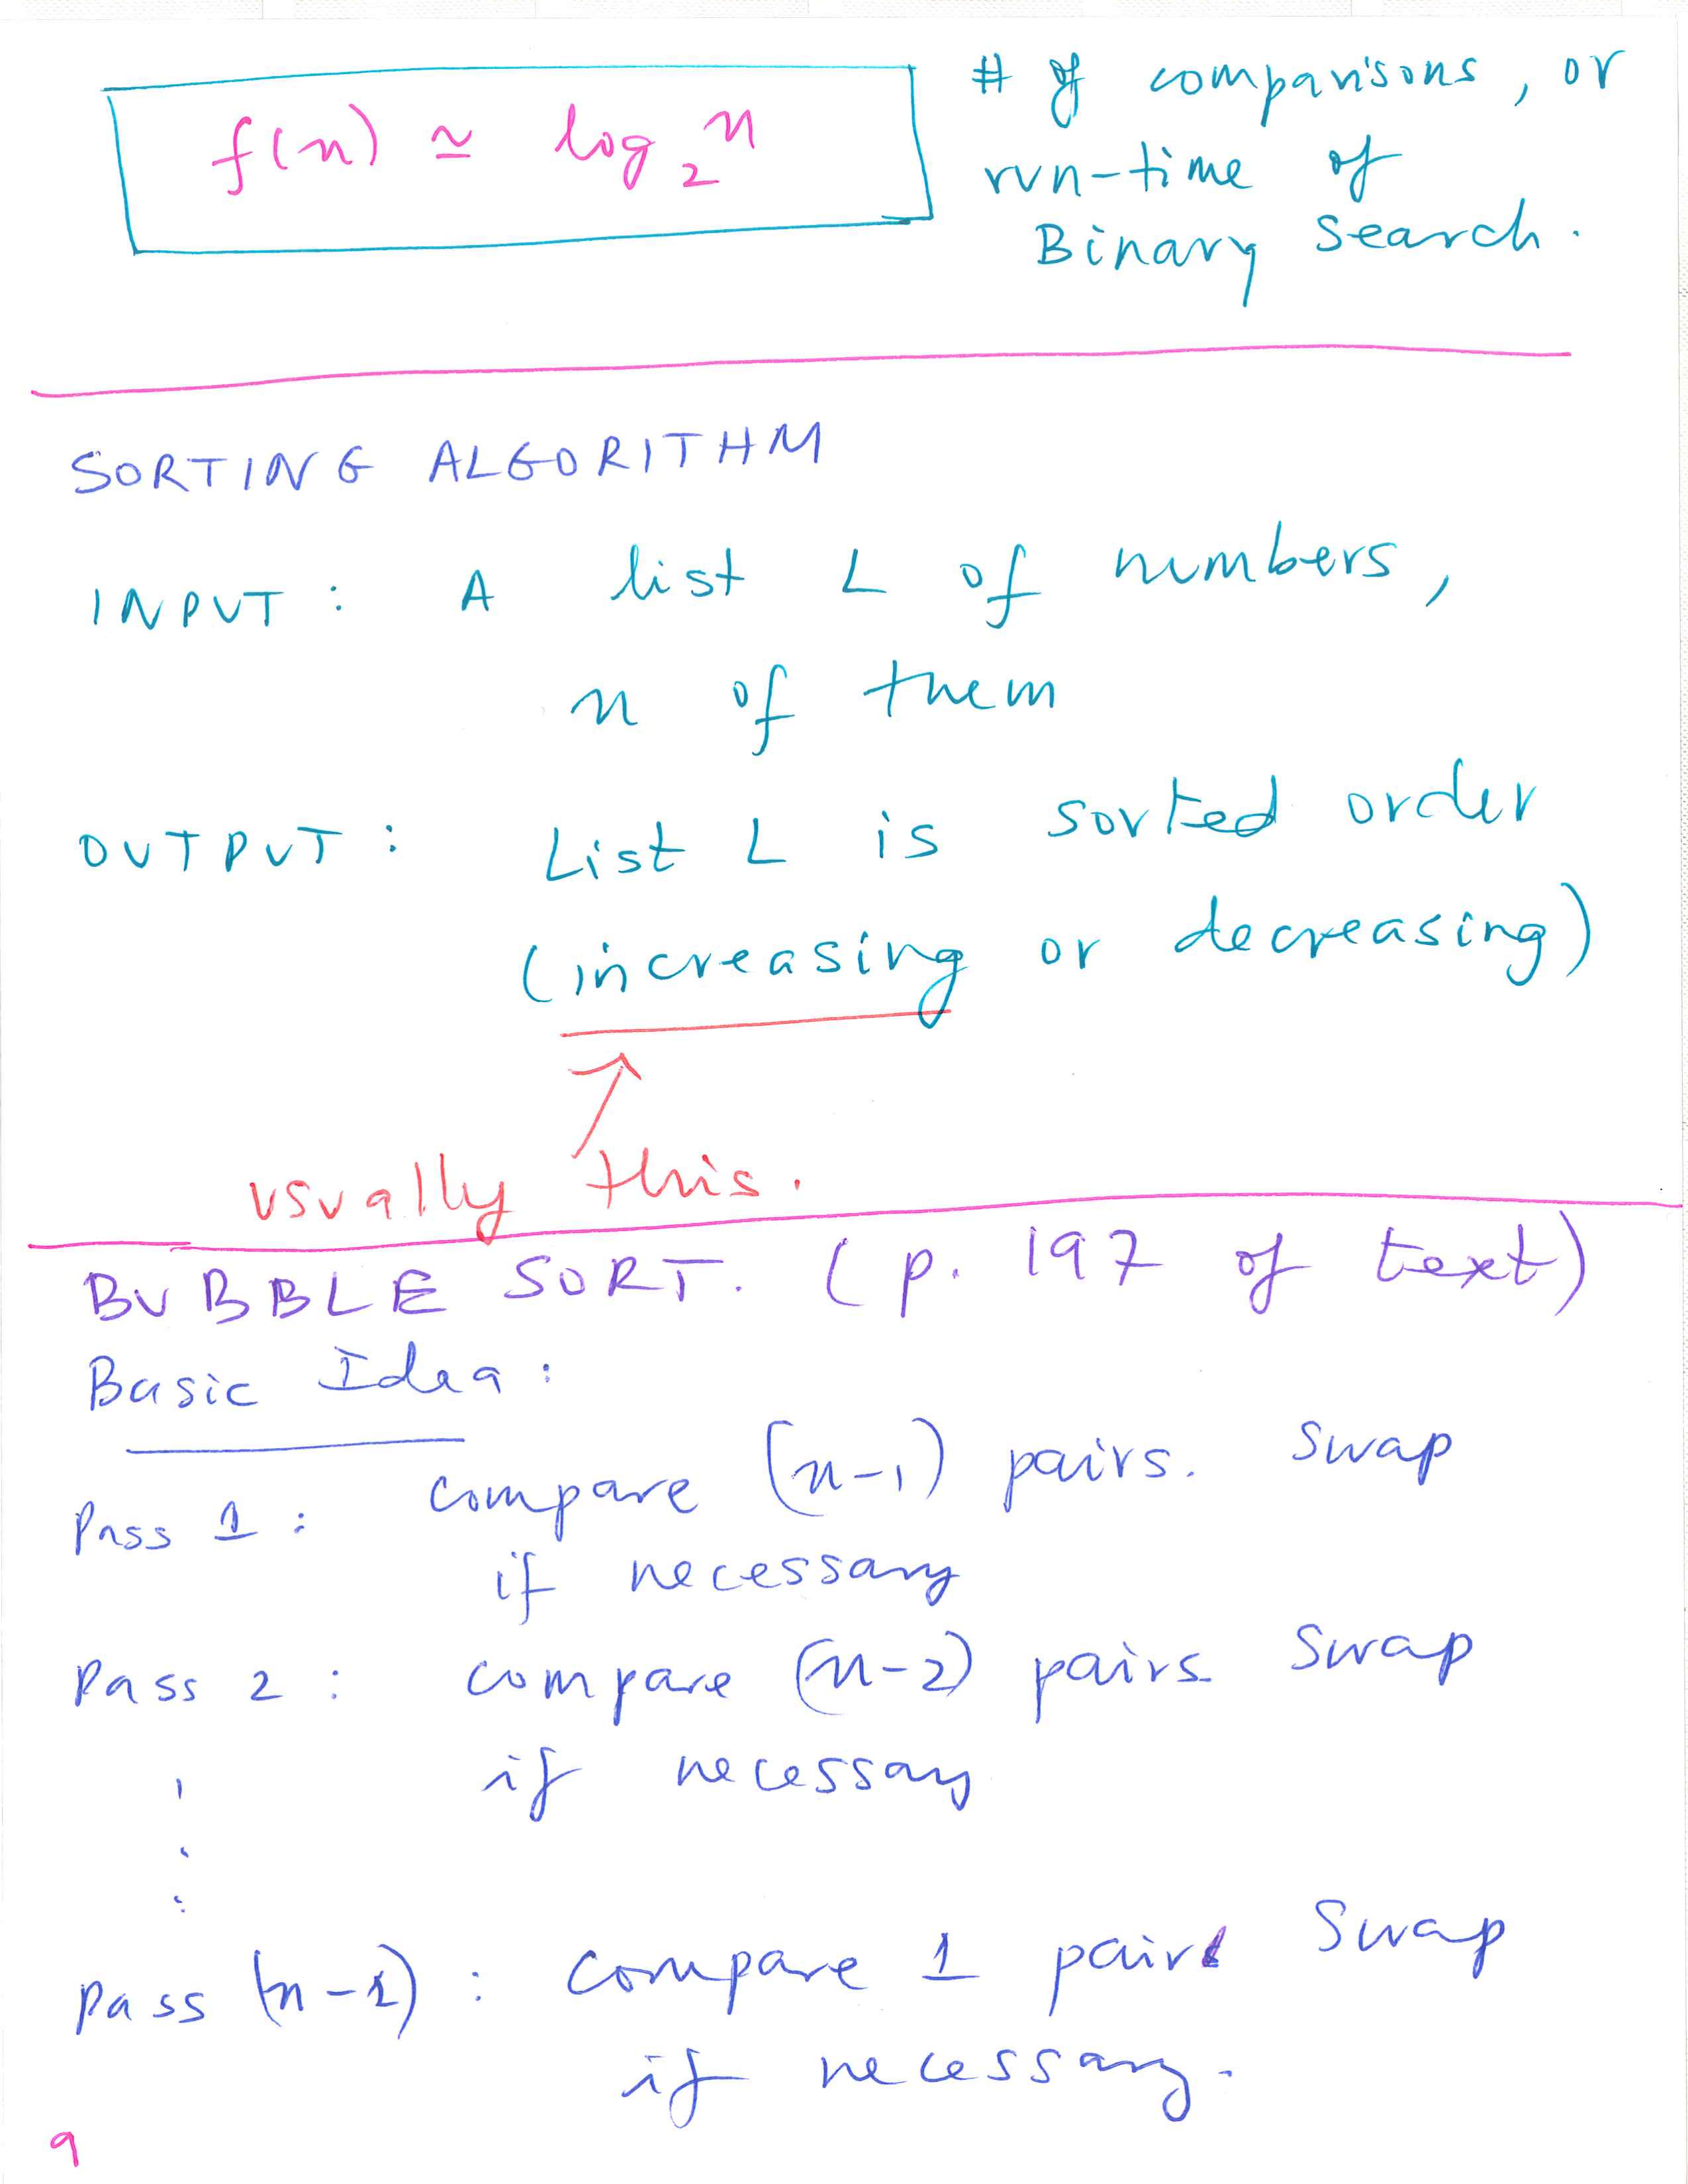 f(n) ≃ log₂ n
# of comparisons, or
run-time of
Binary Search.
SORTING ALGORITHM
INPUT : A list L of numbers,
n of them
OUTPUT : List L is sorted order
(increasing or decreasing)
usually this.
BUBBLE SORT. (p. 197 of text)
Basic Idea :
Pass 1 : compare (n-1) pairs. Swap
if necessary
Pass 2 : compare (n-2) pairs Swap
if necessary
Pass (n-1) : compare 1 pair Swap
if necessary.
9